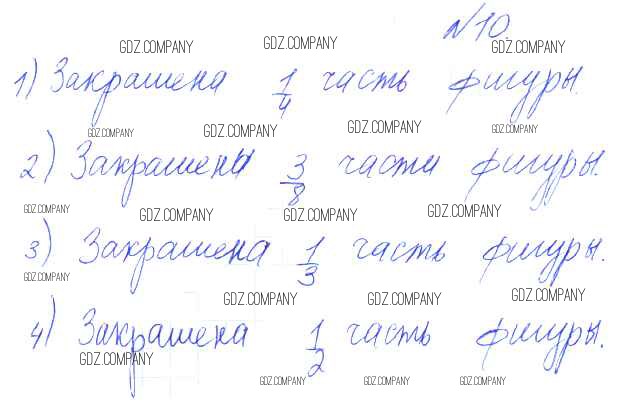 №10.
GDZ.COMPANY GDZ.COMPANY GDZ.COMPANY
1) Закрашена 1/4 часть фигуры.
GDZ.COMPANY GDZ.COMPANY GDZ.COMPANY GDZ.COMPANY
2) Закрашены 3/8 части фигуры.
GDZ.COMPANY GDZ.COMPANY GDZ.COMPANY GDZ.COMPANY
3) Закрашена 1/3 часть фигуры.
GDZ.COMPANY
GDZ.COMPANY GDZ.COMPANY GDZ.COMPANY
4) Закрашена 1/2 часть фигуры.
GDZ.COMPANY
GDZ.COMPANY GDZ.COMPANY GDZ.COMPANY